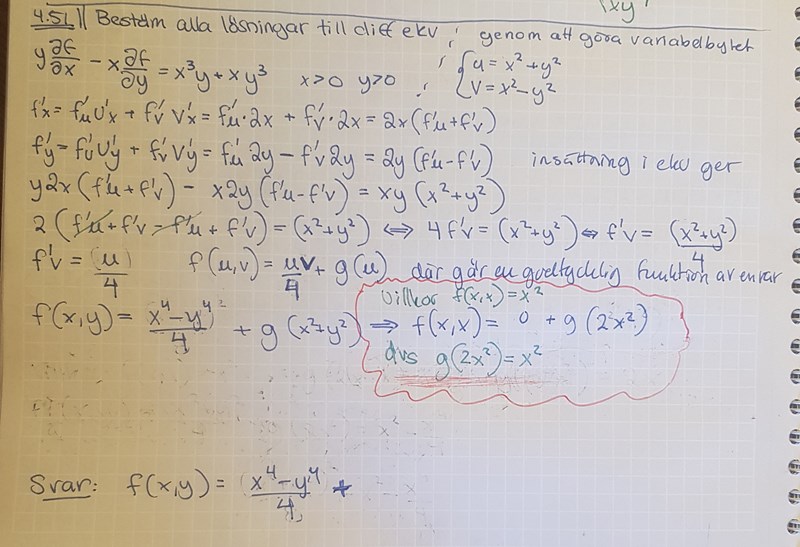 xy
4.51 || Bestäm alla lösningar till diff ekv ; genom att göra variabelbytet
y ∂f/∂x - x ∂f/∂y = x³y + xy³ x>0 y>0 ; { u = x²+y²
v = x²-y²
f'x = f'u u'x + f'v v'x = f'u·2x + f'v·2x = 2x(f'u+f'v)
f'y = f'u u'y + f'v v'y = f'u 2y - f'v 2y = 2y(f'u-f'v) insättning i ekv ger
y2x(f'u+f'v) - x2y(f'u-f'v) = xy(x²+y²)
2(f'u+f'v-f'u+f'v) = (x²+y²) ⇔ 4f'v = (x²+y²) ⇔ f'v = (x²+y²)/4
f'v = (u)/4 f(u,v) = uv/4 + g(u) där g är en godtycklig funktion av en var
villkor f(x,x) = x²
f(x,y) = x⁴-y⁴/4 + g(x²+y²) ⇒ f(x,x) = 0 + g(2x²)
dvs g(2x²) = x²
x²
Svar: f(x,y) = (x⁴-y⁴/4 +